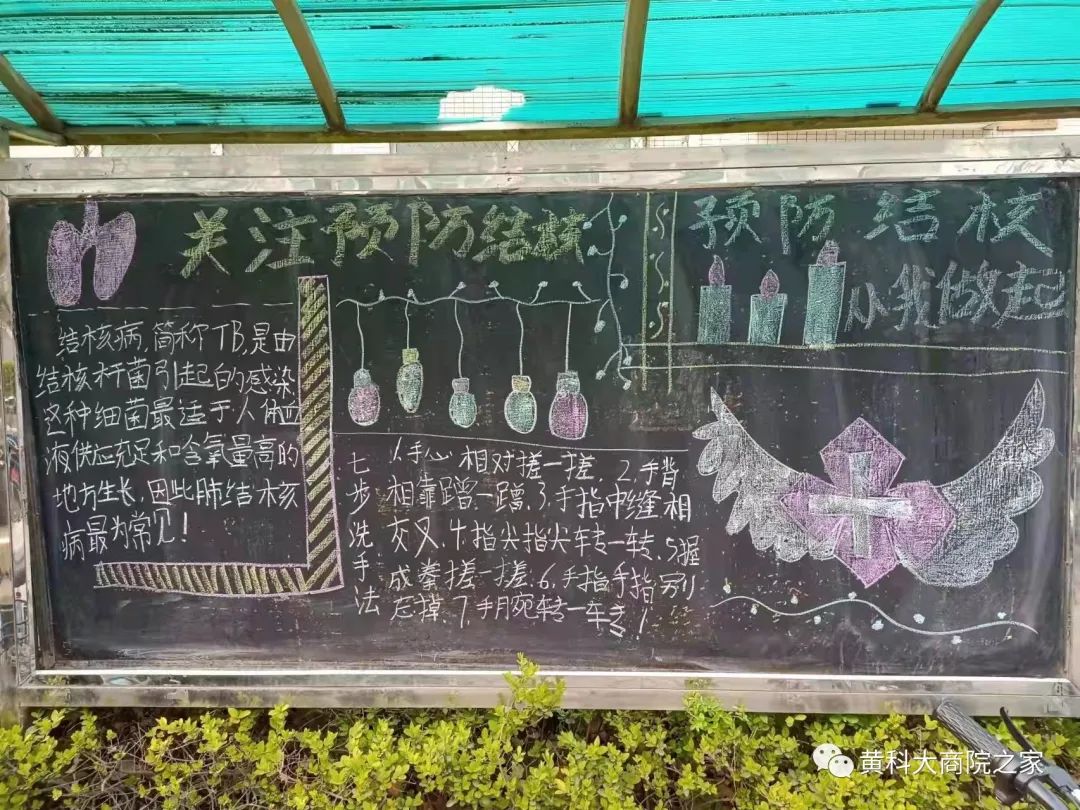 关注预防结核
结核病,简称TB,是由
结核杆菌引起的感染
这种细菌最适于人体血
液供应充足和含氧量高的
地方生长,因此肺结核
病最为常见!
七步洗手法
1.手心相对搓一搓.2.手背
相靠蹭一蹭.3.手指中缝相
交叉.4指尖指尖转一转.5握
成拳搓一搓.6.手指手指别
忘掉.7.手腕转一转!
预防结核
从我做起
黄科大商院之家